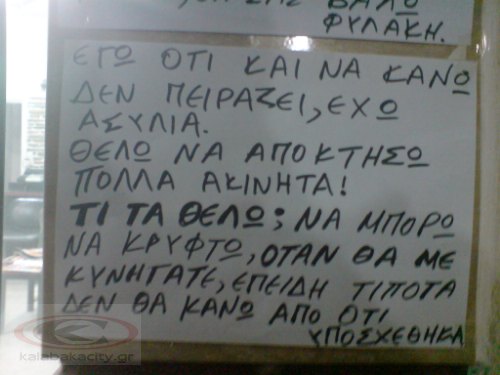 ΦΥΛΑΚΗ.
ΕΓΩ ΟΤΙ ΚΑΙ ΝΑ ΚΑΝΩ
ΔΕΝ ΠΕΙΡΑΖΕΙ, ΕΧΩ
ΑΣΥΛΙΑ.
ΘΕΛΩ ΝΑ ΑΠΟΚΤΗΣΩ
ΠΟΛΛΑ ΑΚΙΝΗΤΑ!
ΤΙ ΤΑ ΘΕΛΩ; ΝΑ ΜΠΟΡΩ
ΝΑ ΚΡΥΦΤΩ, ΟΤΑΝ ΘΑ ΜΕ
ΚΥΝΗΓΑΤΕ, ΕΠΕΙΔΗ ΤΙΠΟΤΑ
ΔΕΝ ΘΑ ΚΑΝΩ ΑΠΟ ΟΤΙ
ΥΠΟΣΧΕΘΗΚΑ
kalabakacity.gr